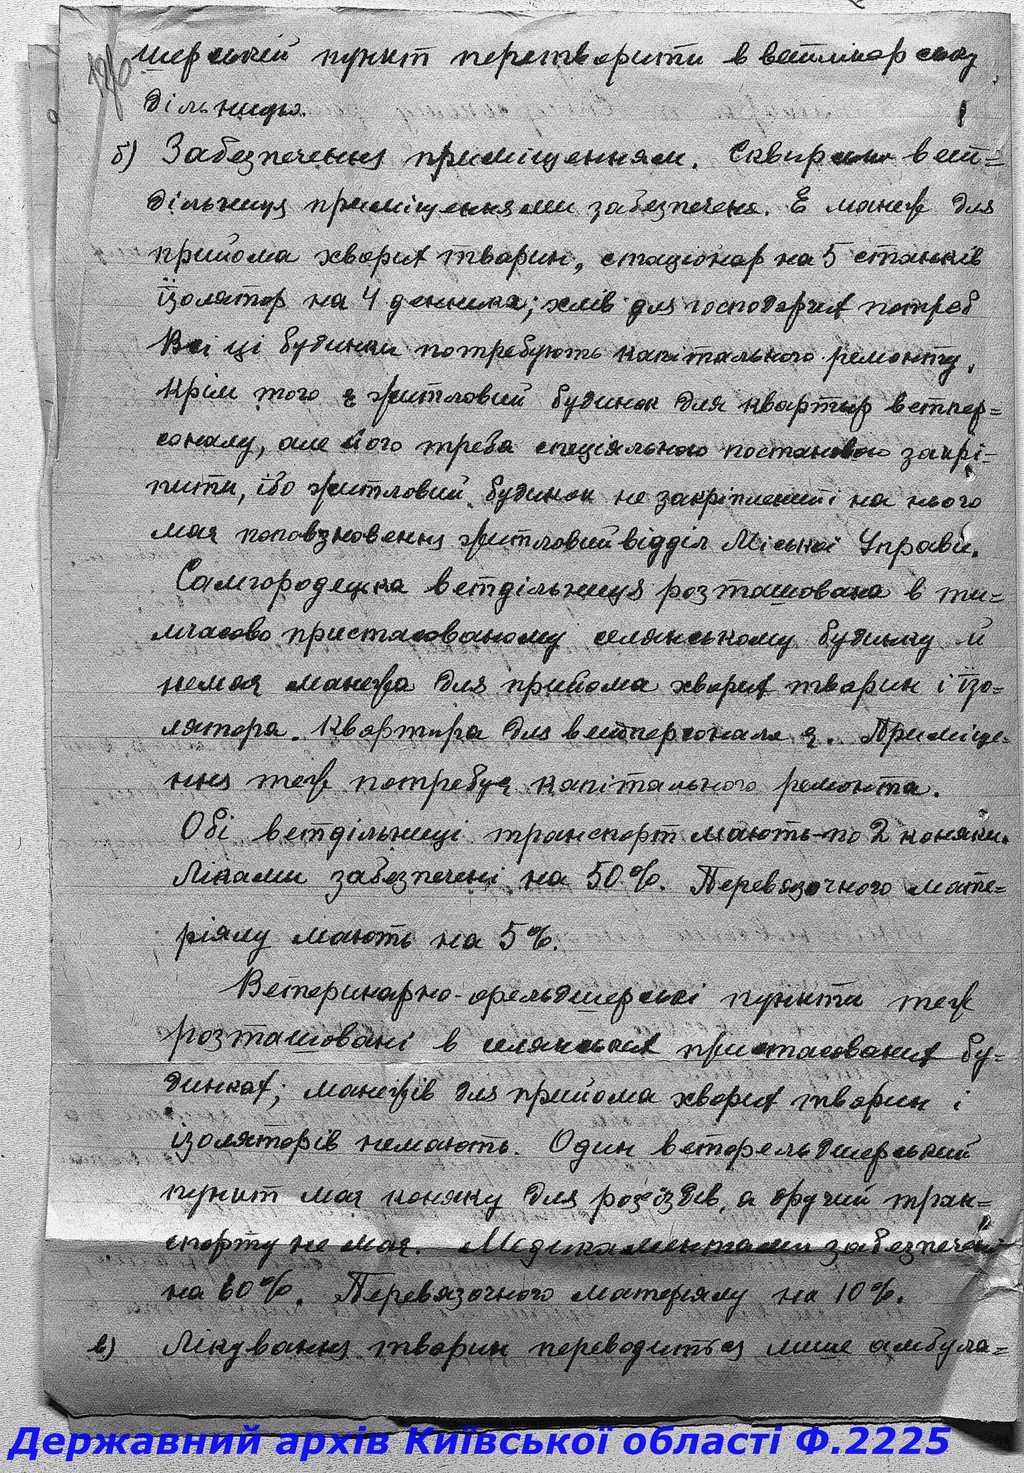 шерський пункт перетворити в ветлікарську
дільницю.
б) Забезпечення приміщенням. Сквирська вет=
дільниця приміщеннями забезпечена. Є манеж для
прийома хворих тварин, стаціонар на 5 станків
ізолятор на 4 денника; хлів для господарчих потреб
Всі ці будинки потребують капітального ремонту.
Крім того є житловий будинок для квартир ветпер=
соналу, але його треба спеціяльною постановою закрі-
пити, ібо житловий будинок не закріплений і на нього
має поповзновення житловий відділ Міської Управи.
Самгородецька ветдільниця розташована в ти=
мчасово пристасованому селянському будинку й
немає манежа для прийома хворих тварин і ізо=
лятора. Квартира для ветперсонала є. Приміще-
ння теж потребує капітального ремонта.
Обі ветдільниці транспорт мають по 2 коняки.
Ліками забезпечені на 50%. Перевязочного мате=
ріялу мають на 5%.
Ветеринарно-фельдшерські пункти теж
розташовані в селянських пристасованих бу-
динках; манежів для прийома хворих тварин і
ізоляторів немають. Один ветфельдшерський
пункт має коняку для розїздів, а другий тран=
спорту не має. Медикаментами забезпечені
на 60%. Перевязочного матеріялу на 10%.
в) Лікування тварин переводиться лише амбула=
Державний архів Київської області Ф.2225